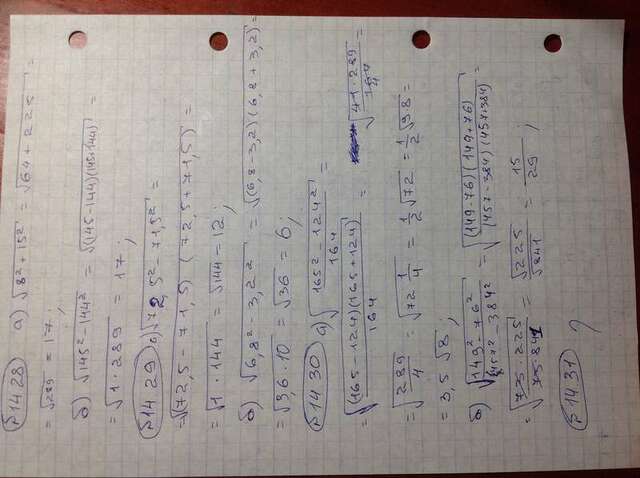 №1428 а) √(8² + 15²) = √(64 + 225) =
= √289 = 17;
б) √(145² - 144²) = √((145 - 144)(145 + 144)) =
= √(1 · 289) = 17;
№1429 а) √(72,5² - 71,5²) =
= √((72,5 - 71,5) (72,5 + 71,5)) =
= √(1 · 144) = √144 = 12;
б) √(6,8² - 3,2²) = √((6,8 - 3,2)(6,8 + 3,2)) =
= √(3,6 · 10) = √36 = 6;
№1430 а) √((165² - 124²)/164)
= √((165 - 124)(165 + 124)/164) = √(41 · 289/164) 4
= √(289/4) = √(72 1/4) = 1/2 √72 = 1/2 √98 =
= 3,5 √8;
б) √((149² - 76²)/(457² - 384²)) = √((149 - 76)(149 + 76)/(457 - 384)(457 + 384))
= √(73 · 225/73 · 841) = √225/√841 = 15/29;
№1431 ?